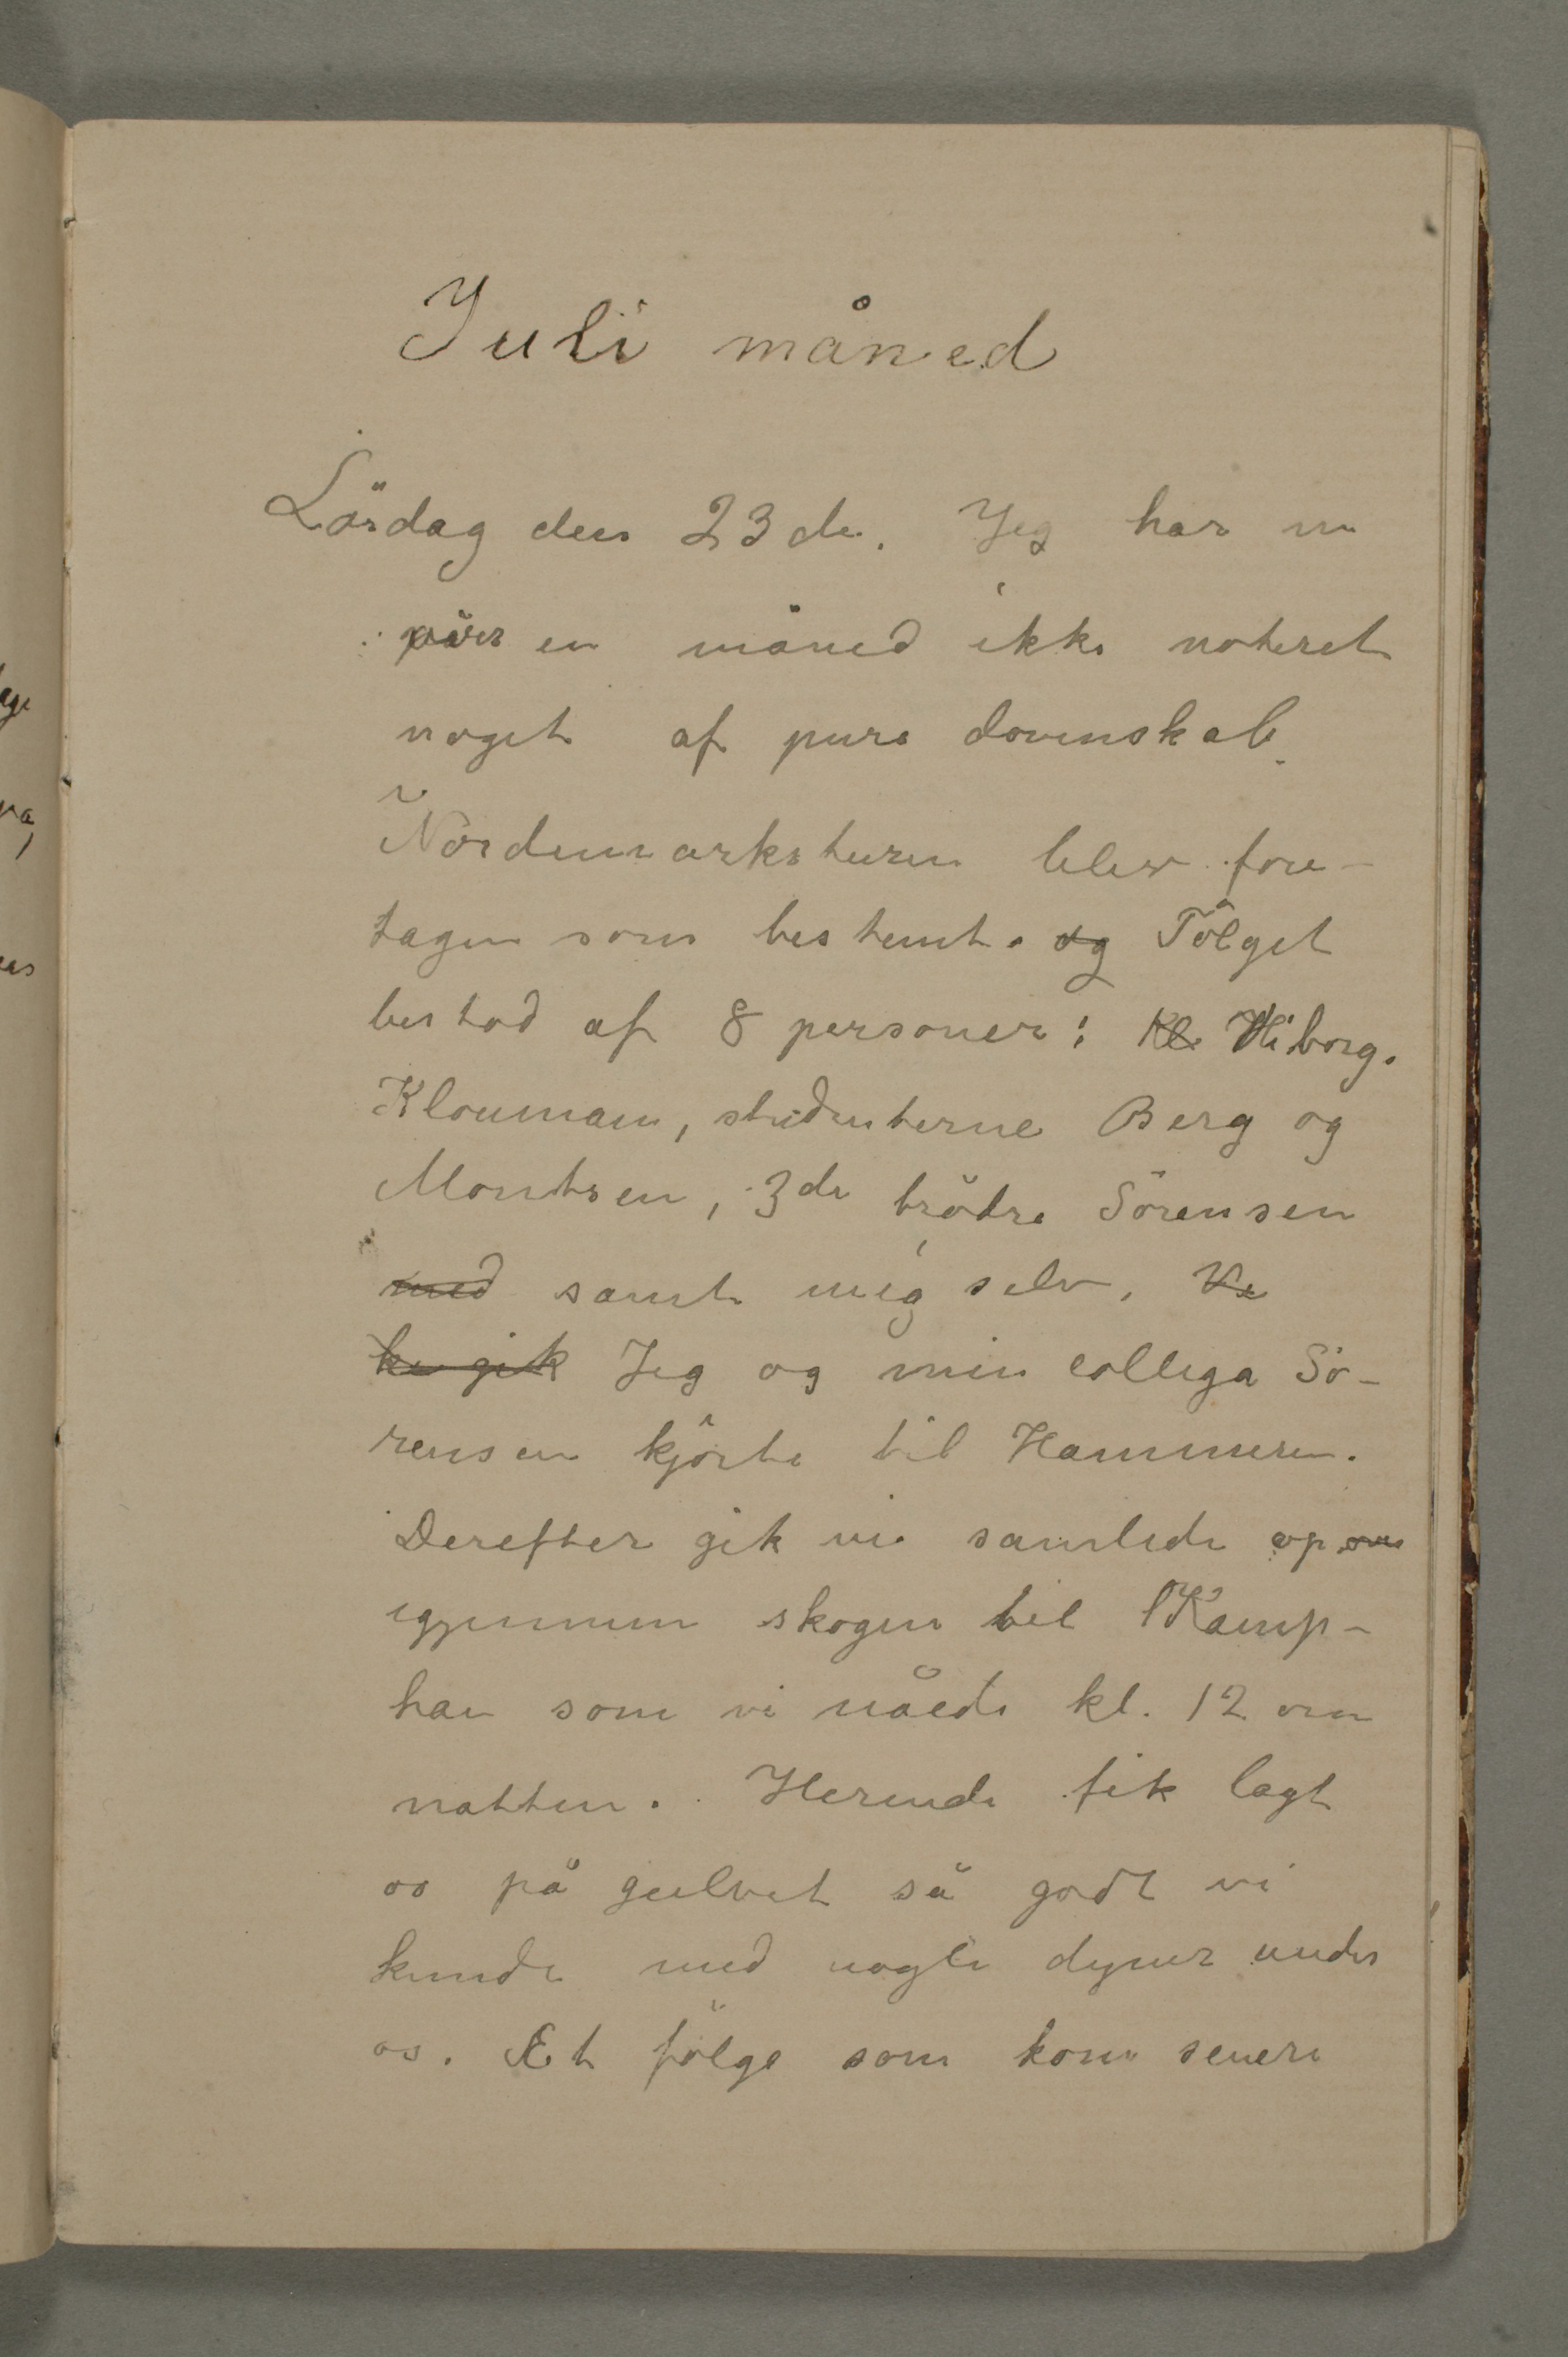 Juli måned
Lördag den 23de. Jeg har nu
över en måned ikke noteret
noget af pure dovenskab.
Nordmarksturen blev fore-
tagen som bestemt. og Fölget
bestod af 8 personer: Kl Wiborg.
Klouman, studenterne Berg og
Morntsen, 3de brödre Sörensen
med samt mig selv. Ve
be gik Jeg og min collega Sö-
rensen kjörte til Hammeren.
Derefter gik vi samlede op om
igjennem skogen til Kamp-
han som vi nåede kl. 12 om
natten. Herinde fik lagt
os på gulvet så godt vi
kunde med nogle dyner under
os. Et fölge som kom senere